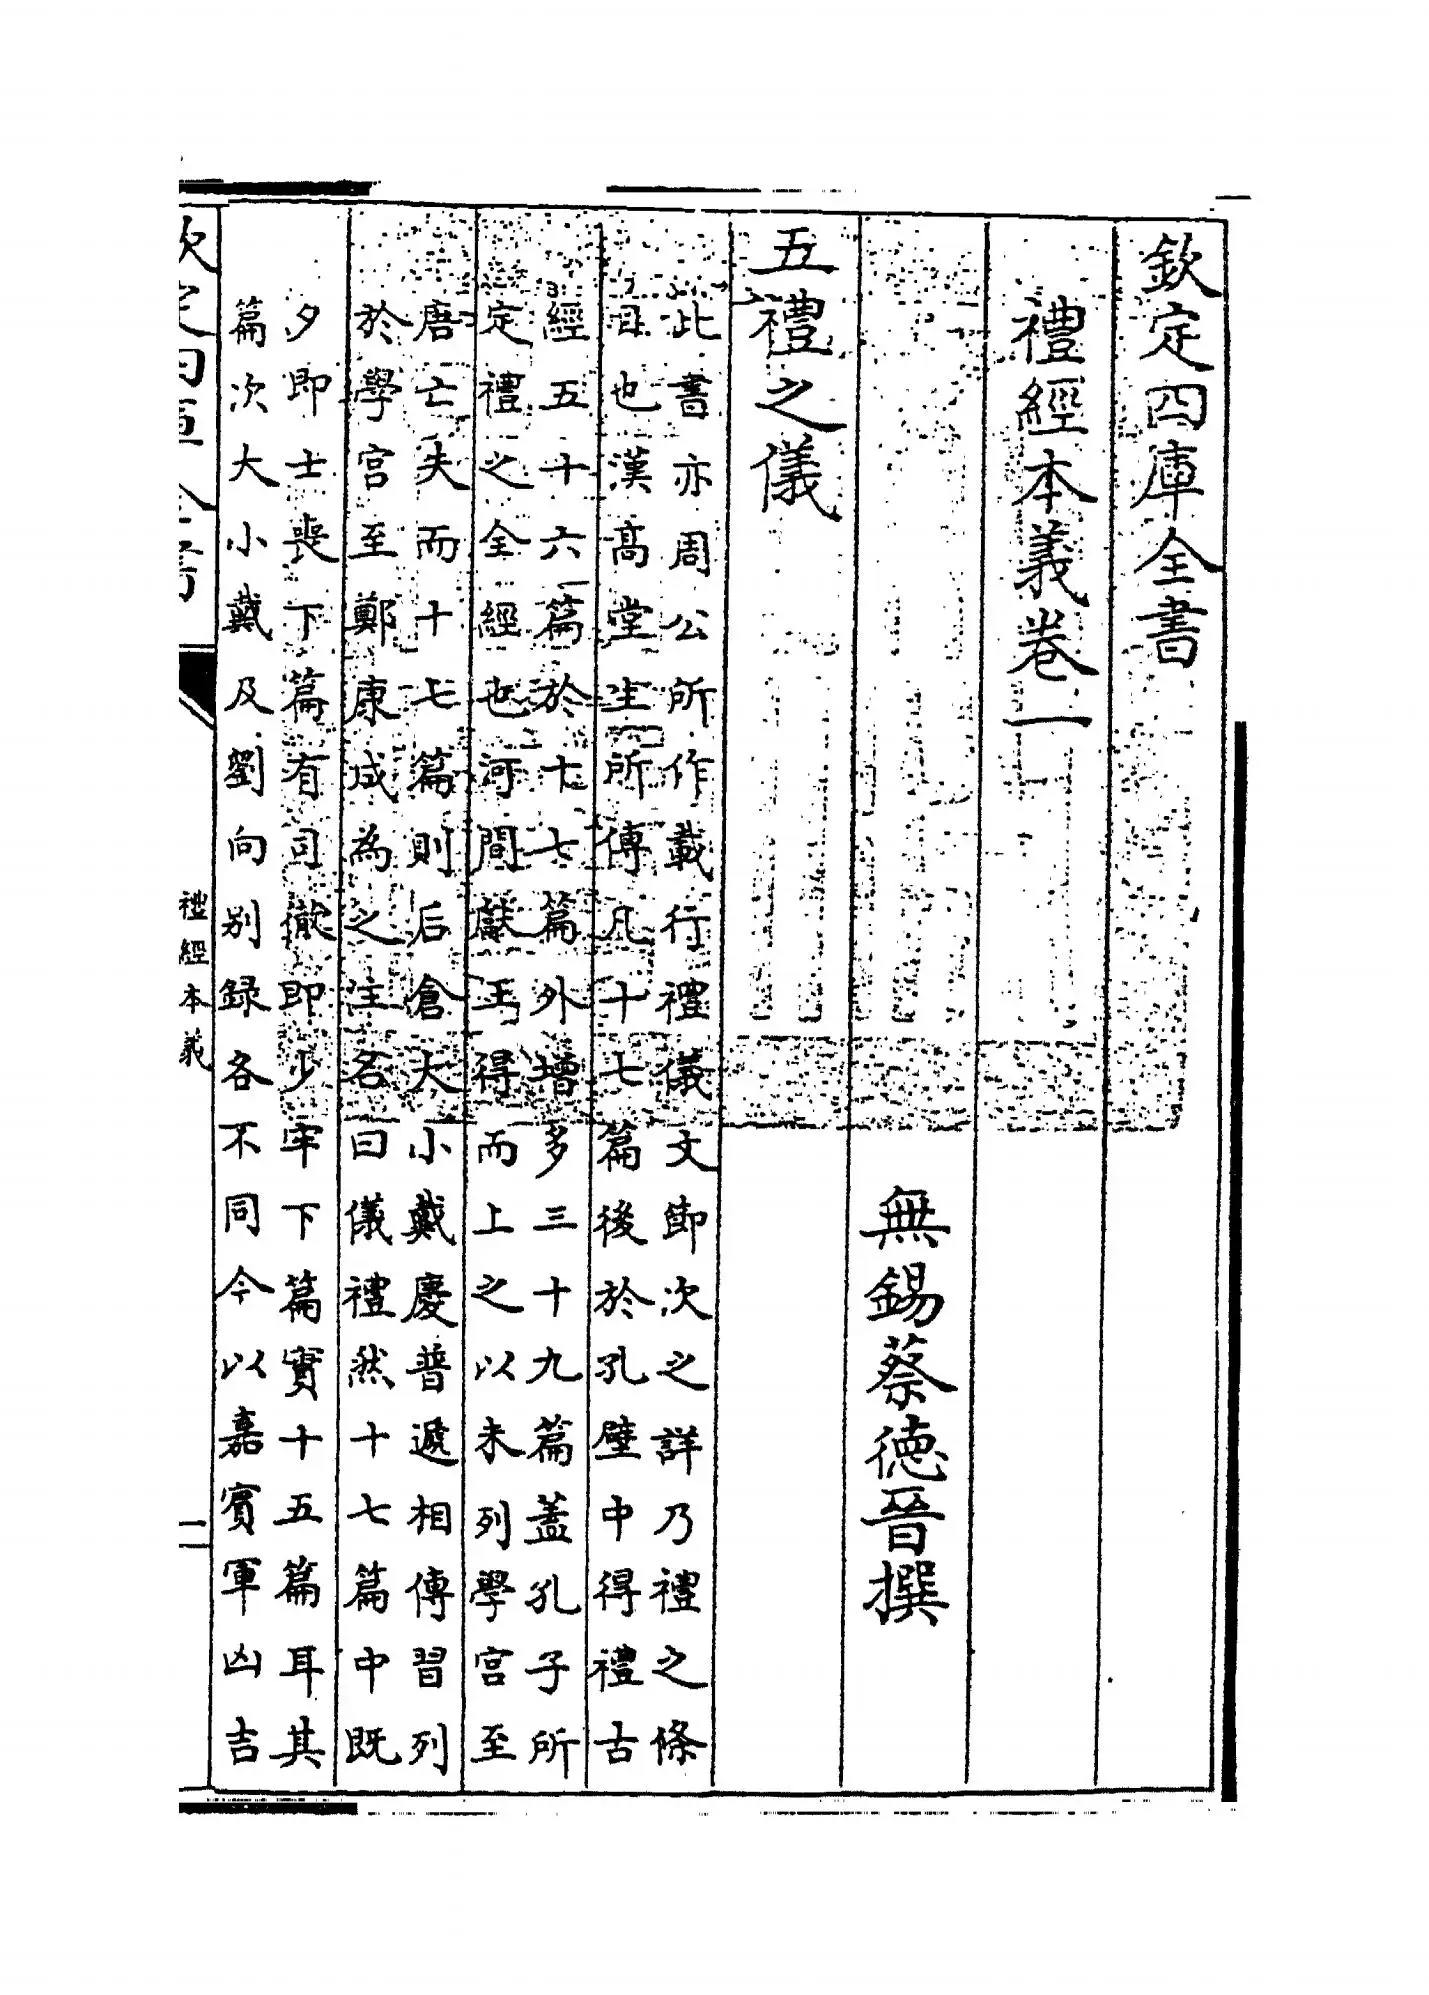 欽定四庫全書
禮經本義卷一
無錫蔡德晉撰
五禮之儀
此書亦周公所作載行禮儀文節次之詳乃禮之條
目也漢高堂生所傳凡十七篇後於孔壁中得禮古
經五十六篇於十七篇外增多三十九篇蓋孔子所
定禮之全經也河間獻王得而上之以未列學宮至
唐亡失而十七篇則后倉大小戴慶普遞相傳習列
於學宮至鄭康成為之註名曰儀禮然十七篇中既
夕即士喪下篇有司徹即少牢下篇實十五篇耳其
篇次大小戴及劉向别録各不同今以嘉賓軍凶吉
欽定四庫全書
禮經本義
一